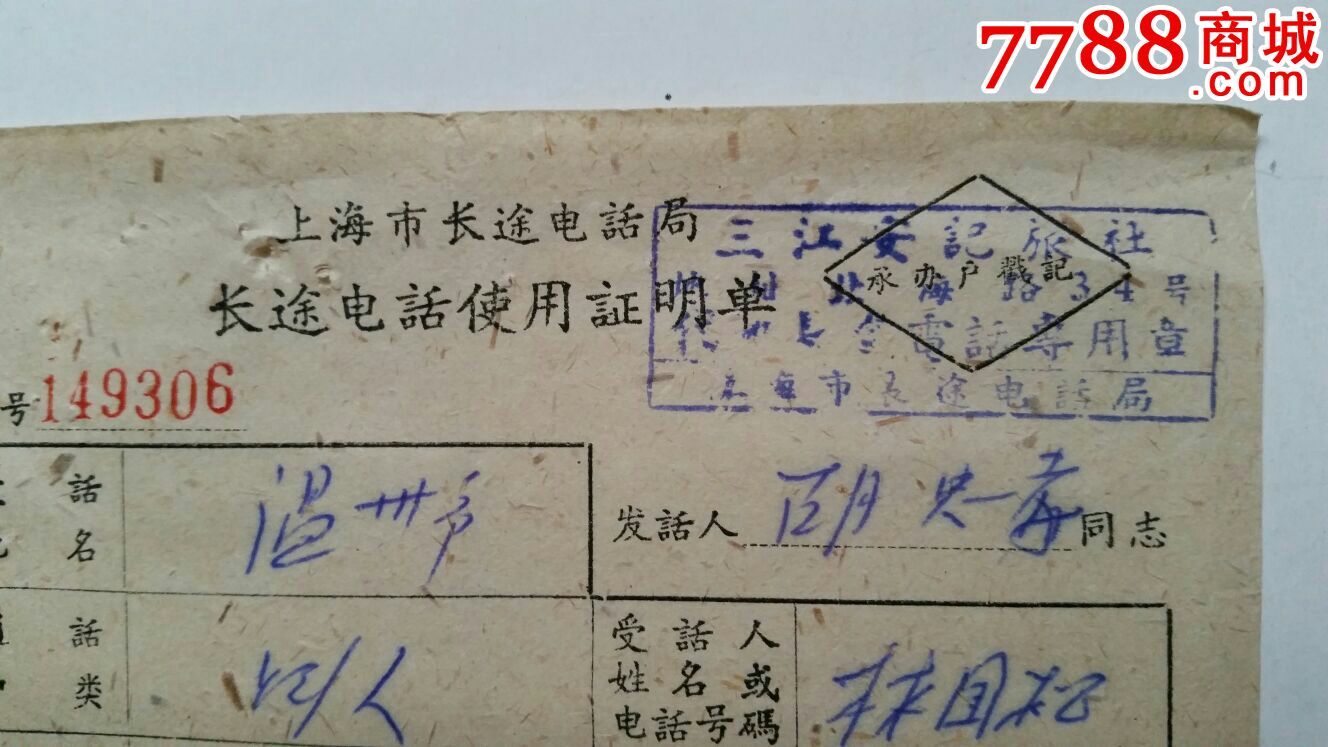 7788商城
.com
上海市长途电話局
长途电話使用証明单
承办户戳記
三江安記旅社
海路34号
電話専用章
上海市长途电話局
号149306
話
名
温州
发話人 同志
話
类
叫人
受話人
姓名或
电話号碼
林国松